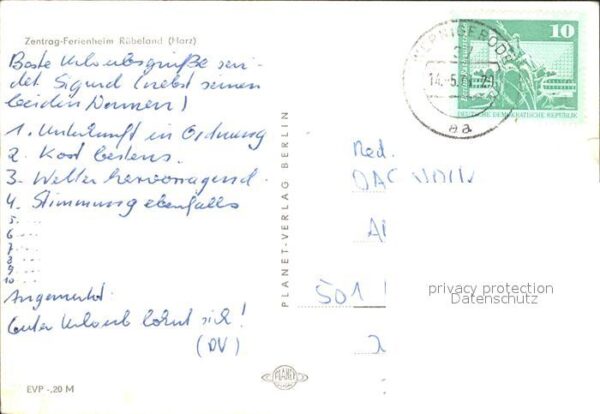 Zentrag-Ferienheim Rübeland (Harz)
Beste Urlaubsgrüße sen-
det Sigurd (nebst seinen
beiden Damen)
1. Unterkunft in Ordnung
2. Kost bestens.
3. Wetter hervorragend.
4. Stimmung ebenfalls
5. ....
6 ....
7 ....
8 ....
9 ....
10 ....
Angemerkt:
Guter Urlaub lohnt sich!
(DV)
EVP -,20 M
PLANET-VERLAG BERLIN
PLANET
WERNIGERODE
14.-5.
aa
10
DEUTSCHE DEMOKRATISCHE REPUBLIK
Red.
501
privacy protection
Datenschutz